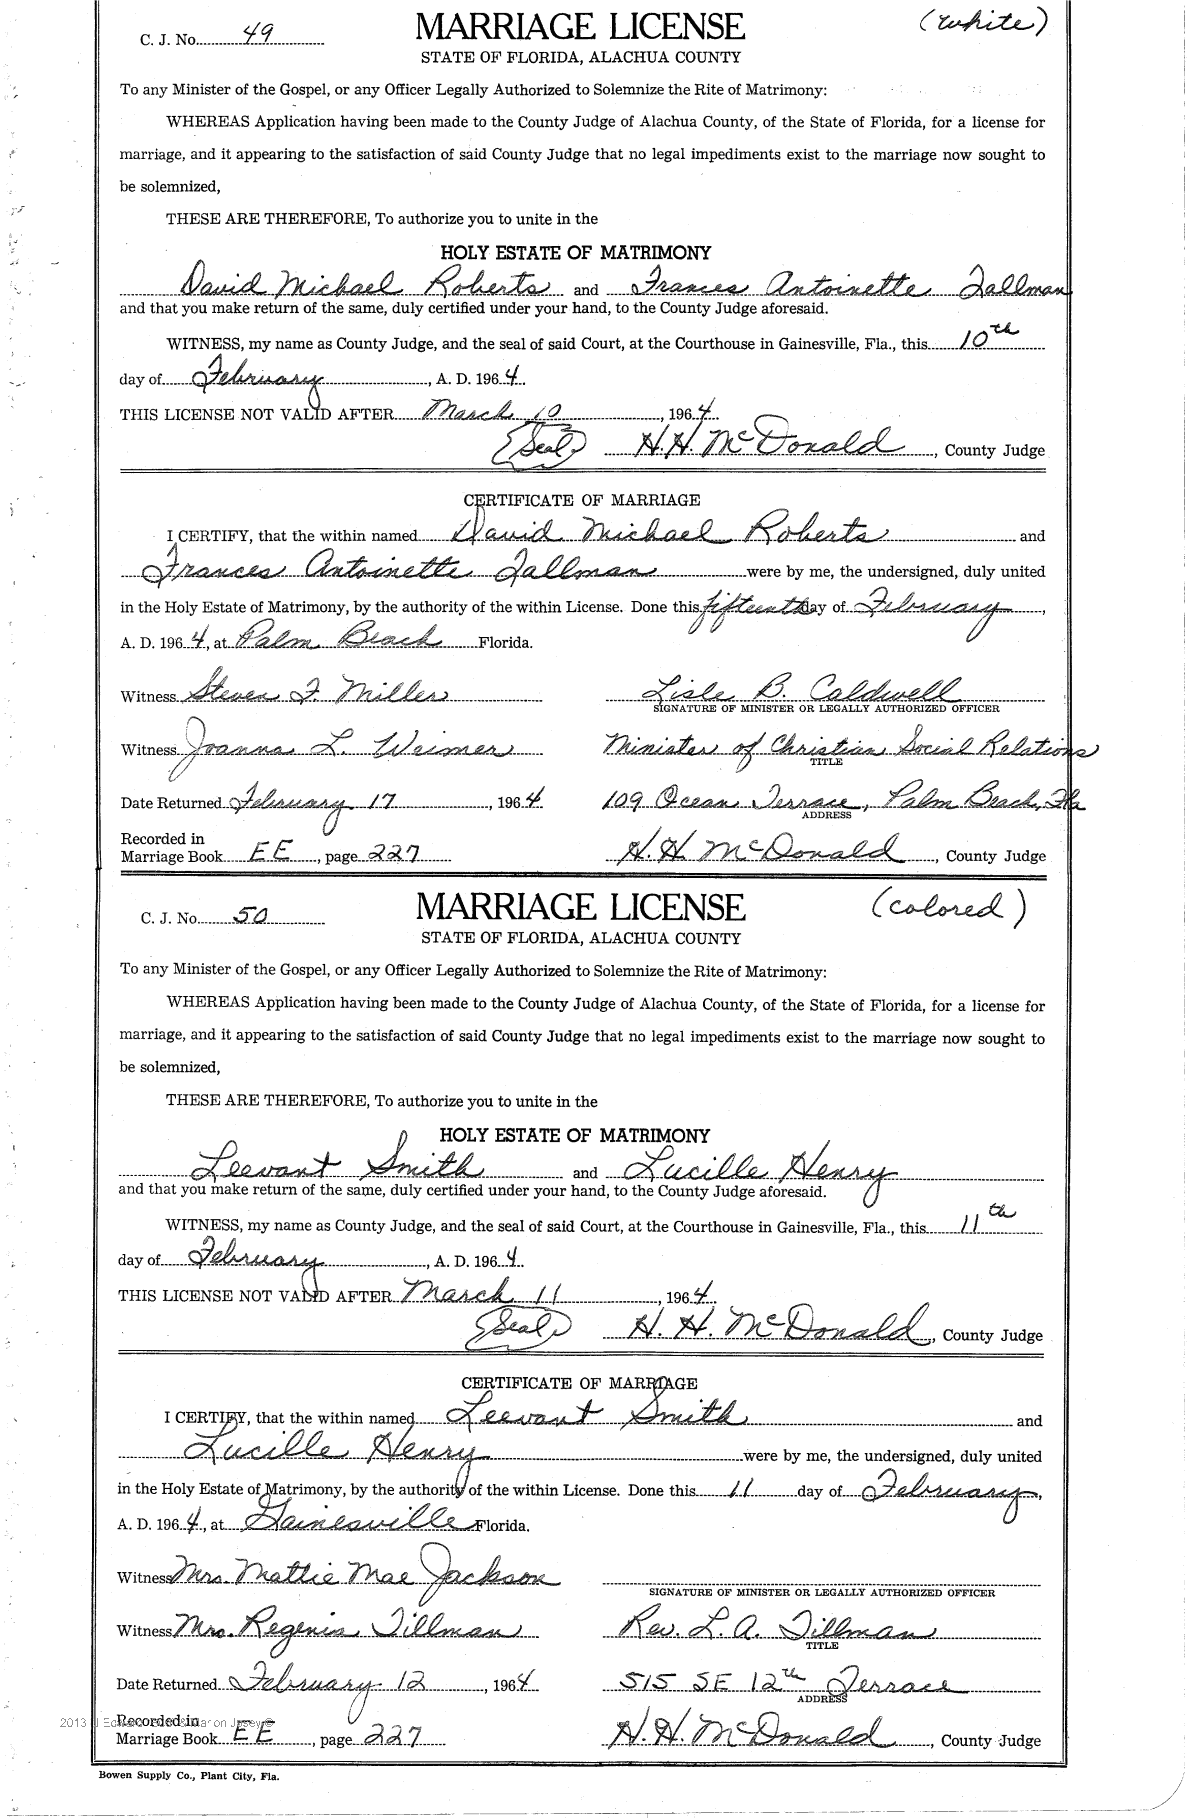 C. J. No. 49
MARRIAGE LICENSE
(white)
STATE OF FLORIDA, ALACHUA COUNTY
To any Minister of the Gospel, or any Officer Legally Authorized to Solemnize the Rite of Matrimony:
WHEREAS Application having been made to the County Judge of Alachua County, of the State of Florida, for a license for
marriage, and it appearing to the satisfaction of said County Judge that no legal impediments exist to the marriage now sought to
be solemnized,
THESE ARE THEREFORE, To authorize you to unite in the
HOLY ESTATE OF MATRIMONY
David Michael Roberts and Frances Antoinette Tallman
and that you make return of the same, duly certified under your hand, to the County Judge aforesaid.
WITNESS, my name as County Judge, and the seal of said Court, at the Courthouse in Gainesville, Fla., this 10th
day of February, A. D. 1964.
THIS LICENSE NOT VALID AFTER March 10, 1964
(Seal) H. H. McDonald, County Judge
CERTIFICATE OF MARRIAGE
I CERTIFY, that the within named David Michael Roberts and
Frances Antoinette Tallman were by me, the undersigned, duly united
in the Holy Estate of Matrimony, by the authority of the within License. Done this fifteenth day of February,
A. D. 1964, at Palm Beach Florida.
Witness Steven F. Miller Lisle B. Caldwell
SIGNATURE OF MINISTER OR LEGALLY AUTHORIZED OFFICER
Witness Joanna L. Weimer Minister of Christian Social Relations
TITLE
Date Returned February 17, 1964 109 Ocean Terrace, Palm Beach, Fla
ADDRESS
Recorded in
Marriage Book EE, page 227 H. H. McDonald, County Judge
C. J. No. 50
MARRIAGE LICENSE
(colored)
STATE OF FLORIDA, ALACHUA COUNTY
To any Minister of the Gospel, or any Officer Legally Authorized to Solemnize the Rite of Matrimony:
WHEREAS Application having been made to the County Judge of Alachua County, of the State of Florida, for a license for
marriage, and it appearing to the satisfaction of said County Judge that no legal impediments exist to the marriage now sought to
be solemnized,
THESE ARE THEREFORE, To authorize you to unite in the
HOLY ESTATE OF MATRIMONY
Leevant Smith and Lucille Henry
and that you make return of the same, duly certified under your hand, to the County Judge aforesaid.
WITNESS, my name as County Judge, and the seal of said Court, at the Courthouse in Gainesville, Fla., this 11th
day of February, A. D. 1964.
THIS LICENSE NOT VALID AFTER March 11, 1964.
(Seal) H. H. McDonald, County Judge
CERTIFICATE OF MARRIAGE
I CERTIFY, that the within named Leevant Smith and
Lucille Henry were by me, the undersigned, duly united
in the Holy Estate of Matrimony, by the authority of the within License. Done this 11 day of February,
A. D. 1964, at Gainesville Florida.
Witness Mrs. Mattie Mae Jackson
SIGNATURE OF MINISTER OR LEGALLY AUTHORIZED OFFICER
Witness Mrs. Regenia Tillman Rev. L. A. Tillman
TITLE
Date Returned February 12, 1964 515 SE 12th Terrace
ADDRESS
Recorded in
Marriage Book EE, page 227 H. H. McDonald, County Judge
Bowen Supply Co., Plant City, Fla.